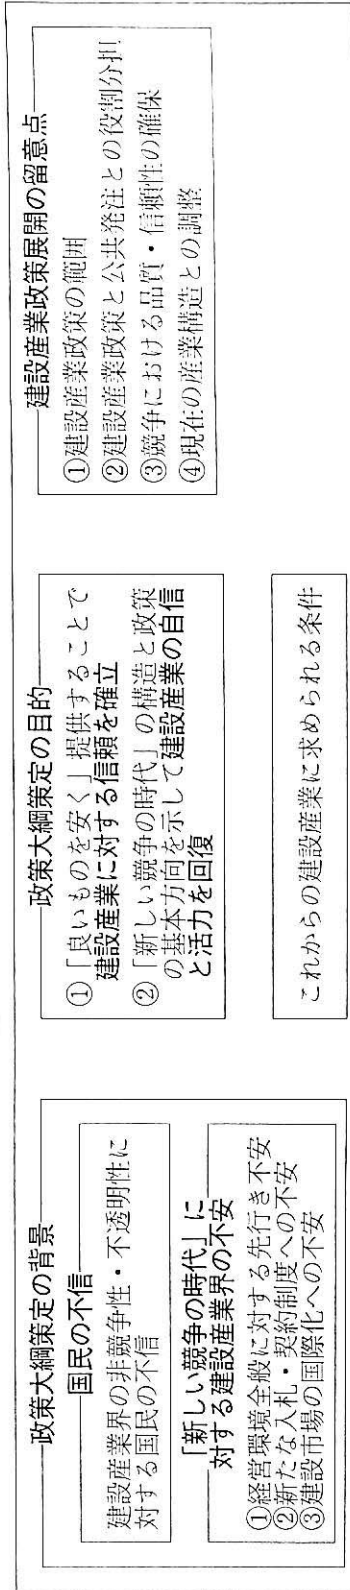 政策大綱策定の背景
国民の不信
建設産業界の非競争性・不透明性に
対する国民の不信
「新しい競争の時代」に
対する建設産業界の不安
①経営環境全般に対する先行き不安
②新たな入札・契約制度への不安
③建設市場の国際化への不安
政策大綱策定の目的
①「良いものを安く」提供することで
建設産業に対する信頼を確立
②「新しい競争の時代」の構造と政策
の基本方向を示して建設産業の自信
と活力を回復
これからの建設産業に求められる条件
建設産業政策展開の留意点
①建設産業政策の範囲
②建設産業政策と公共発注との役割分担
③競争における品質・信頼性の確保
④現在の産業構造との調整